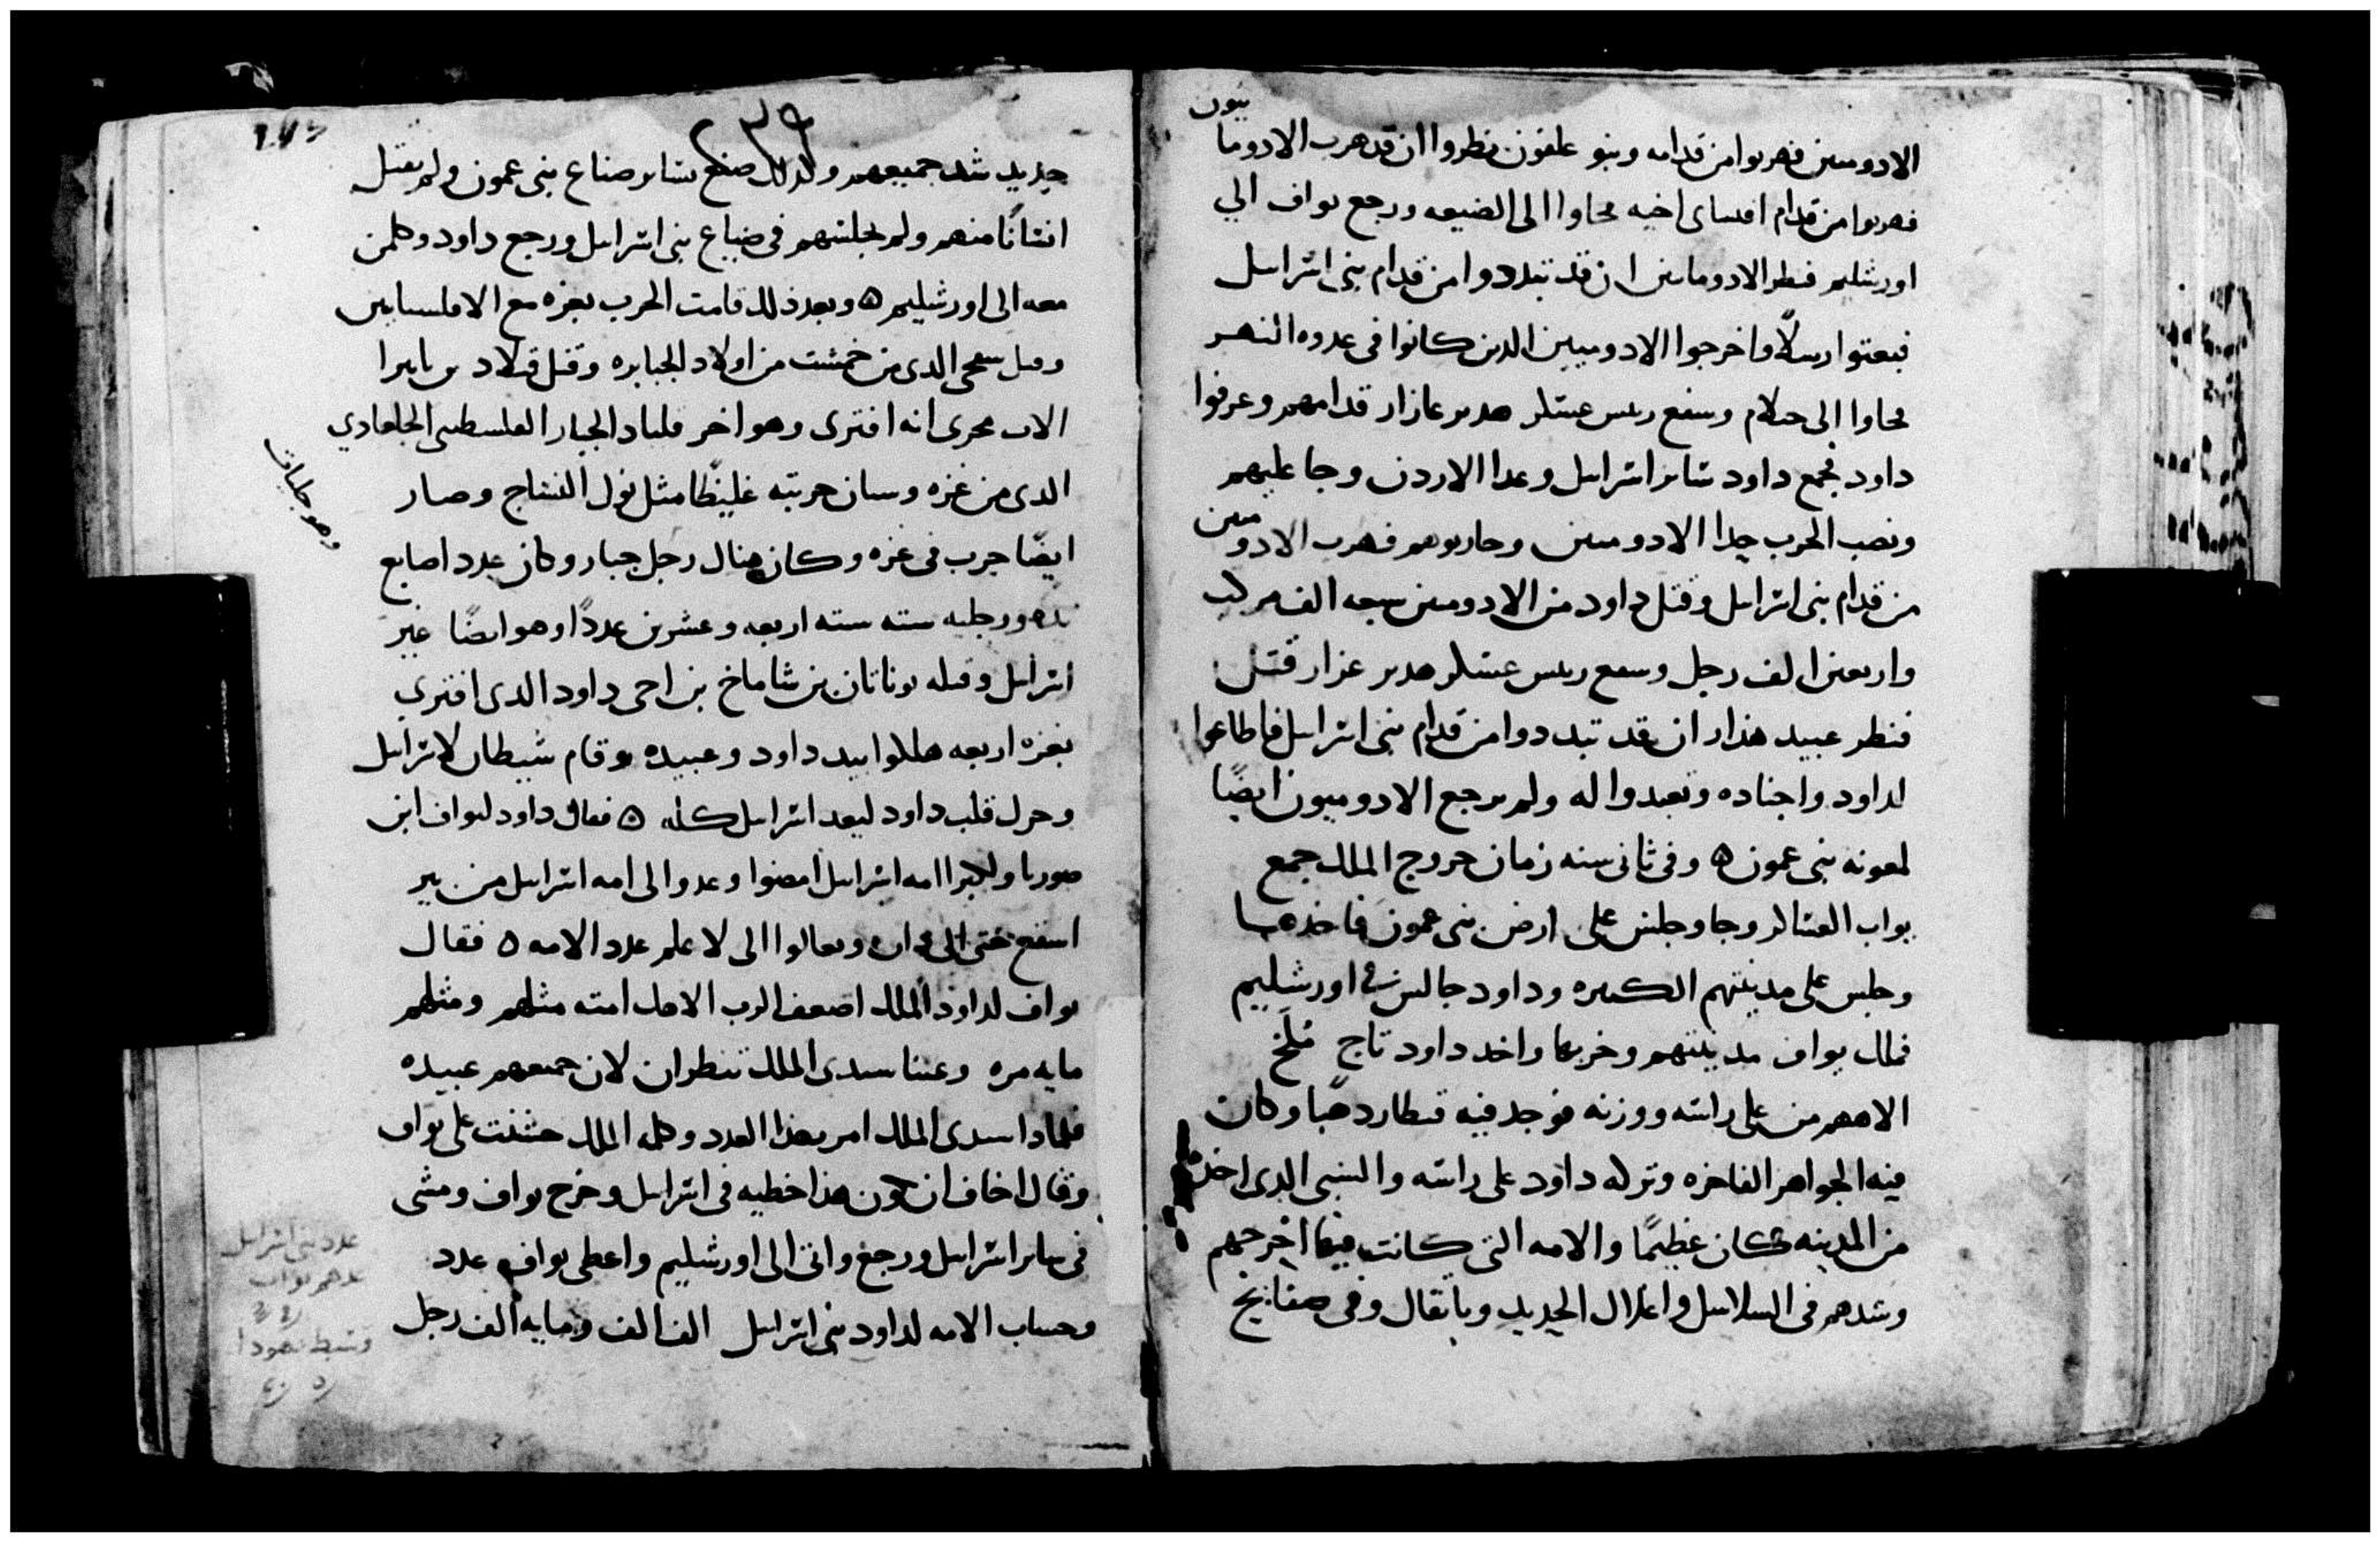 الادوميين فهربوا من قدامه وبنو علفون نظروا ان قد هرب الادوما
بيون
فهربوا من قدام افساى اخيه محاوا الى الضيعه ورجع يواف الي
اورشليم فنظر الادومايين ان قد تبددوا من قدام بنى اسرايل
فبعتوا رسلًا واخرجوا الادوميين الدين كانوا فى عدوه النهر
محاوا الى حيلام وسفع ريس عسكر هدرعازار قدامهم وعرفوا
داود فجمع داود ساير اسرايل وعدا الاردن وجا عليهم
ونصب الحرب حدا الادوميين وحاربوهم فهرب الادوميين
من قدام بنى اسرايل وقتل داود من الادوميين سبعه الف مركب
واربعين الف رجل وسفع ريس عسكر هدر عزار قتل
فنظر عبيد هذار ان قد تبددوا من قدام بنى اسرايل فاطاعوا
لداود واجناده وتعبدوا له ولم يرجع الادوميون ايضًا
لمعونه بنى عمون ه وفى ثانى سنه زمان خروج الملك جمع
يواب العساكر وجا وجلس على ارض بنى عمون فاخدها
وجلس على مدينتهم الكبيره وداود جالس فى اورشليم
فملك يواف مدينتهم وخربها واخد داود تاج ملخ
الاههم من على راسه ووزنه فوجد فيه قنطار دهبًا وكان
فيه الجواهر الفاخره وتركه داود على راسه والسبى الدى اخده
من المدينه كان عظيمًا والامه التى كانت فيها اخرجهم
وشدهم فى السلاسل واغلال الحديد وباثقال وفى صفايح
٢٣٩
حديد شد جميعهم وكدلك صنع بساير صناع بنى عمون ولم يقتل
انسانًا منهم ولم يجلسهم فى ضياع بنى اسرايل ورجع داود وكلمن
معه الى اورشليم ه وبعد ذلك قامت الحرب بغزه مع الافلسايين
وقتل سمحى الدى من خمشت من اولاد الجبابره وقتل قتلاد بن يايرا
الاب محرى انه افترى وهو اخر فلياد الجبار الفلسطينى الجلعادي
الدى من غزه وسان حربته غليظًا مثل نول النساج وصار
وهو جليات
ايضًا حرب فى غزه وكان هناك رجل جبار وكان عدد اصابع
يده ورجليه سته سته اربعه وعشرين عددًا وهو ايضًا عير
اسرايل وقتله يوناتان بن شاماخ بن اخى داود الدى افتري
بغزه اربعه هلكوا بيد داود وعبيده وقام شيطان لاسرايل
وحرك قلب داود ليعد اسرايل كله ه فقال داود ليواف ابن
صوريا ولكبرا امه اسرايل امضوا وعدوا لى امه اسرايل من بير
اسفع حتى الى دان وتعالوا الى لاعلم عدد الامه ه فقال
يواف لداود الملك اضعف الرب الاهك امته مثلهم ومثلهم
مايه مره وعينا سيدى الملك تنظران لان جميعهم عبيده
فلمادا سيدى الملك امر بهذا العدد وكلمه الملك حسنت على يواف
وقال اخاف ان تكون هذا خطيه فى اسرايل وخرج يواف ومشى
فى ساير اسرايل ورجع واتى الى اورشليم واعطى يواف عدد
وحساب الامه لداود بنى اسرايل الف الف ومايه الف رجل
عدد بنى اسرايل
عدهم يواب
وسبط يهودا